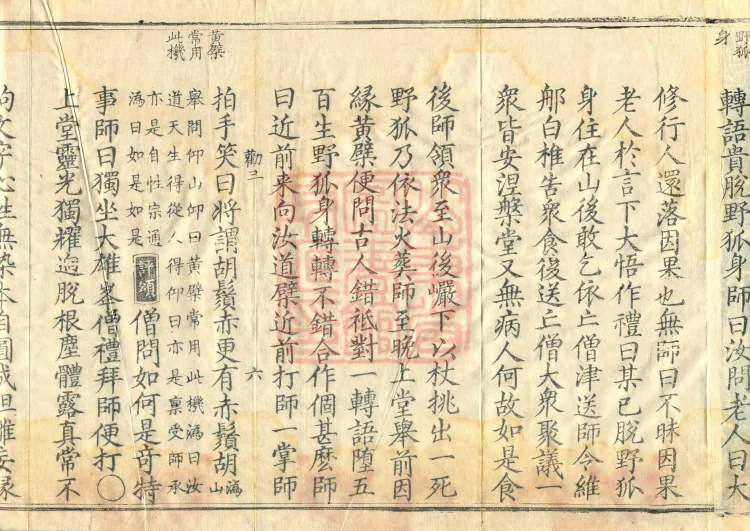 野狐
身
轉語貴脫野狐身師曰汝問老人曰大
修行人還落因果也無師曰不昧因果
老人於言下大悟作禮曰某已脫野狐
身住在山後敢乞依亡僧津送師令維
那白椎告衆食後送亡僧大衆聚議一
衆皆安涅槃堂又無病人何故如是食
後師領衆至山後巖下以杖挑出一死
野狐乃依法火葬師至晚上堂舉前因
緣黃檗便問古人錯祗對一轉語堕五
百生野狐身轉轉不錯合作個甚麽師
曰近前来向汝道檗近前打師一掌師
勸二
六
拍手笑曰將謂胡鬚赤更有赤鬚胡
溈山
黃檗
常用
此機
舉問仰山仰曰黃檗常用此機溈曰汝
道天生得從人得仰曰亦是稟受師承
亦是自性宗通
溈曰如是如是
評頌
僧問如何是竒特
事師曰獨坐大雄峯僧禮拜師便打〇
上堂靈光獨耀逈脫根塵體露真常不
拘文字心性無染本自圓成但離妄緣